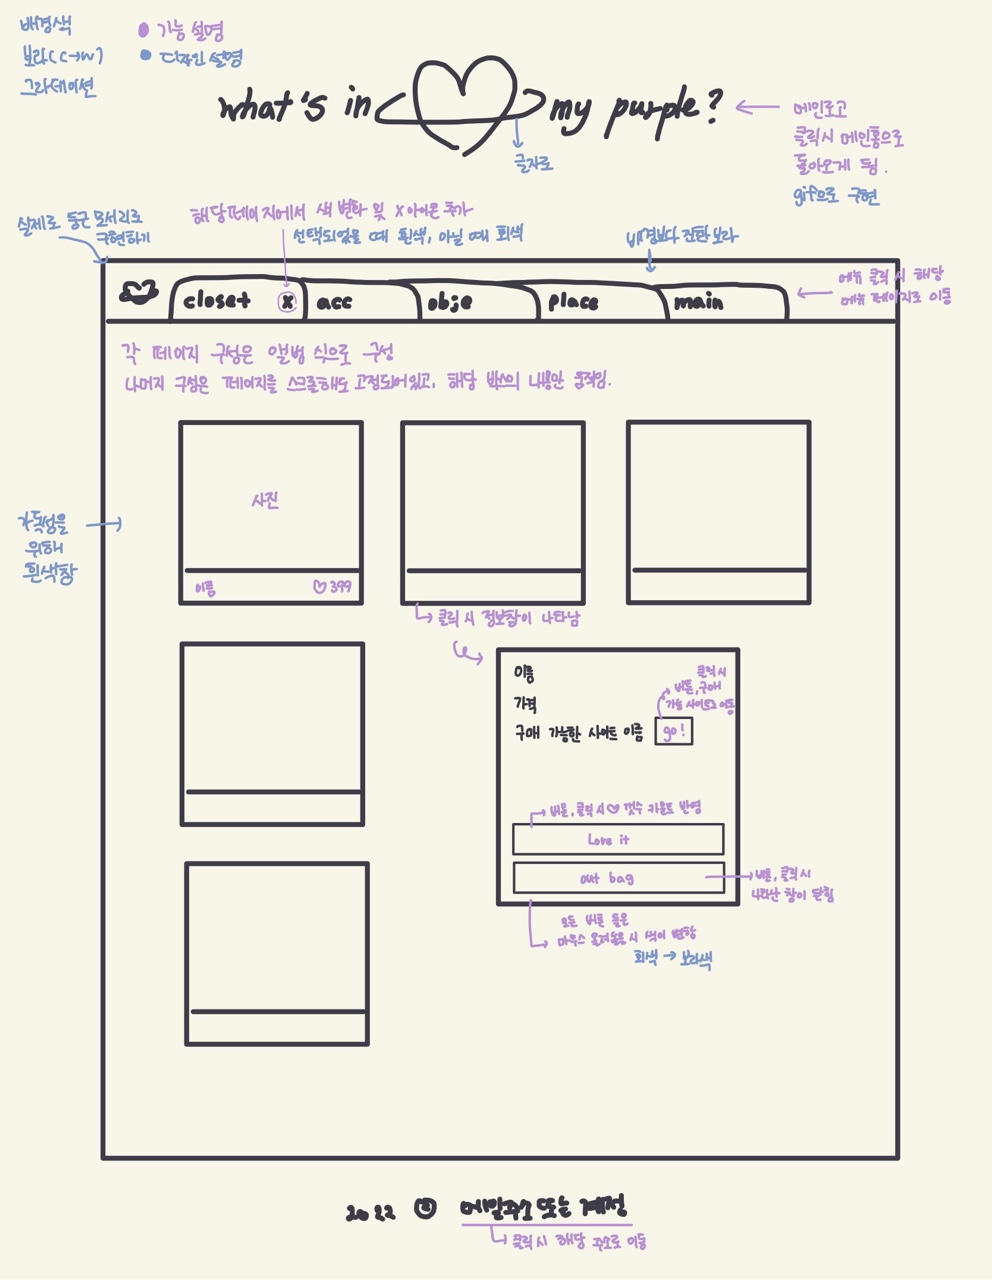 배경색
보라(c→w)
그라데이션
기능 설명
디자인 설명
what's in my purple?
글자로
메인로고
클릭시 메인홈으로
돌아오게 됨.
gif으로 구현
실제로 둥근 모서리로
구현하기
해당페이지에서 색 변화 및 x아이콘 추가
선택되었을 때 흰색, 아닐 때 회색
배경보다 진한 보라
closet x acc obje place main
메뉴 클릭 시 해당
메뉴 페이지로 이동
각 페이지 구성은 앨범 식으로 구성
나머지 구성은 페이지를 스크롤해도 고정되어있고, 해당 박스의 내용만 움직임.
가독성을
위해
흰색창
사진
이름 ♡399
클릭 시 정보창이 나타남
이름
가격
구매 가능한 사이트 이름 go!
클릭 시
버튼, 구매
가능 사이트로 이동
버튼, 클릭 시 ♡ 갯수 카운트 반영
Love it
out bag
버튼, 클릭 시
나타난 창이 닫힘
모든 버튼 들은
마우스 올려놓을 시 색이 변함
회색 → 보라색
2022 메일주소 또는 계정
클릭 시 해당 주소로 이동